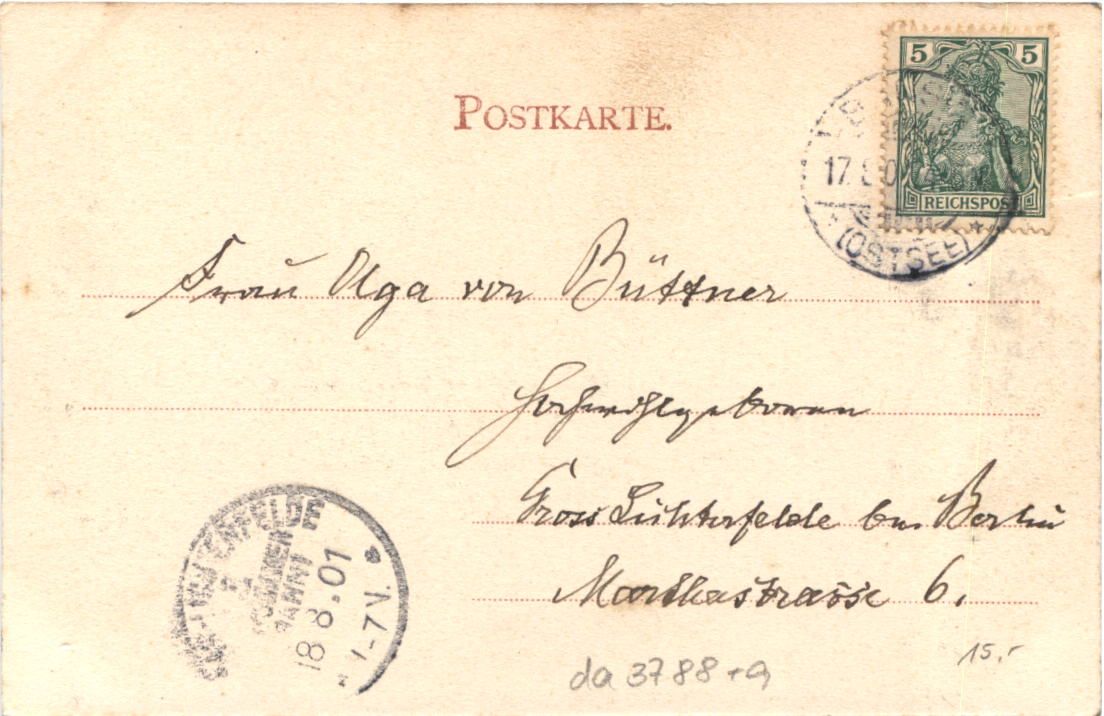 POSTKARTE.
5 5
REICHSPOST
17.8.0
(OSTSEE)
Frau Olga von Büttner
Hochwohlgeboren
Gross Lichterfelde bei Berlin
Marthastrasse 6.
LICHTERFELDE
18.8.01
1-7V.
da 3788+a
15.-